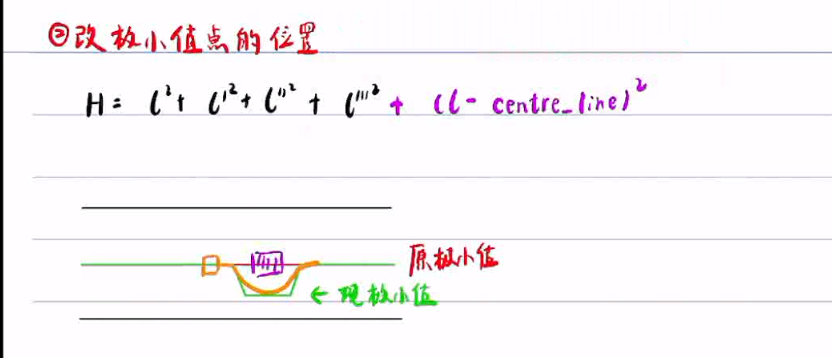 ②改极小值点的位置
H = l² + l'² + l''² + l'''² + (l - centre_line)²
原极小值
← 现极小值